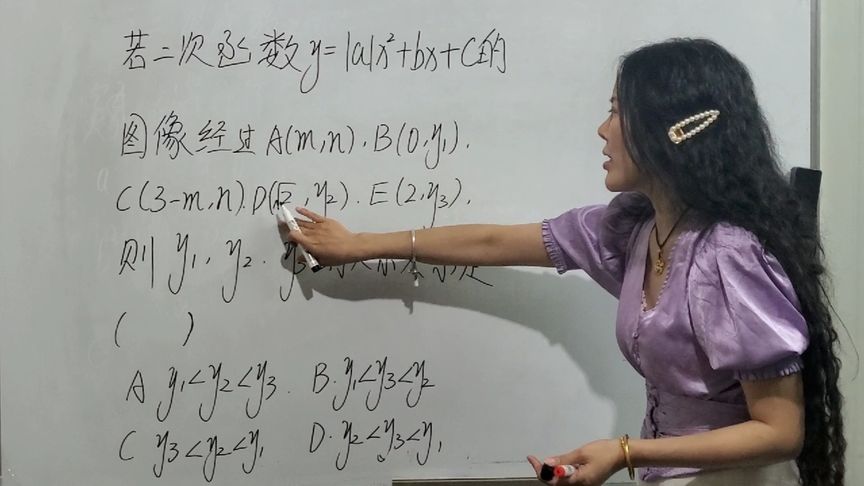 若二次函数y=|a|x²+bx+C的
图像经过A(m,n).B(0,y₁).
C(3-m,n).D(√2,y₂).E(2,y₃).
则y₁、y₂、y₃
( )
A y₁<y₂<y₃. B.y₁<y₃<y₂
C y₃<y₂<y₁ D.y₂<y₃<y₁